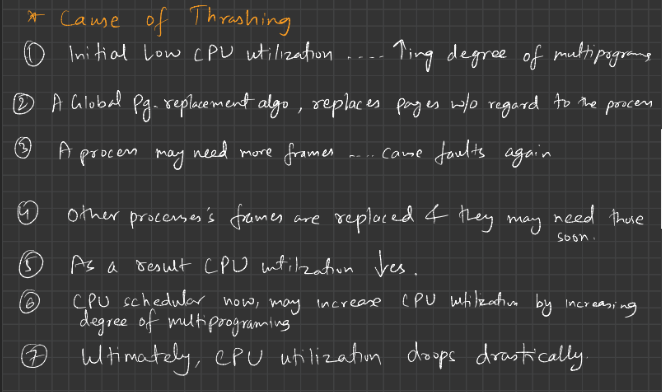 * Cause of Thrashing
① Initial Low CPU utilization .... ↑ing degree of multiprograms
② A Global Pg. replacement algo, replaces pages w/o regard to the process
③ A process may need more frames .... cause faults again
④ Other processes's frames are replaced & they may need those
soon.
⑤ As a result CPU utilization ↓es.
⑥ CPU schedular now, may increase CPU utilization by increasing
degree of multiprograming
⑦ Ultimately, CPU utilization drops drastically.